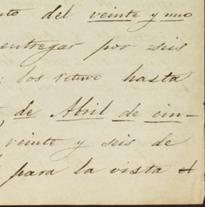 to del veinte y uno
entregar por seis
los retuvo hasta
de Abril de cin-
veinte y seis de
para la vista el